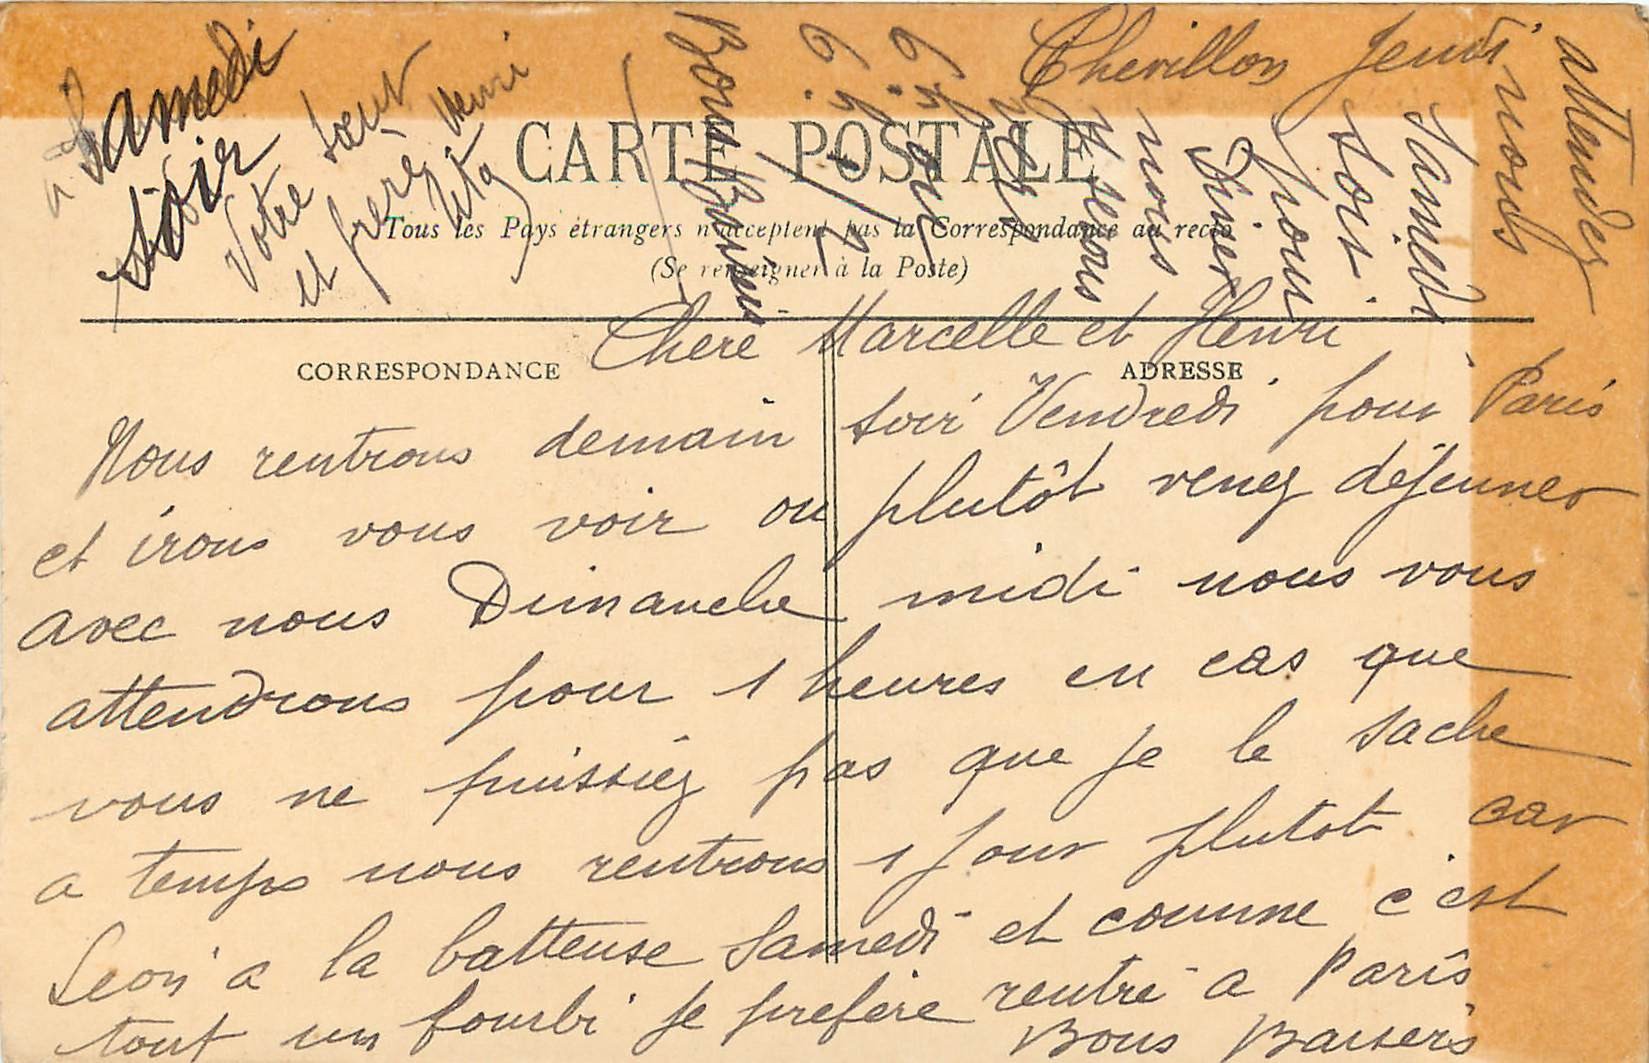 Chevillon Jeudi
CARTE POSTALE
Tous les Pays étrangers n'acceptent pas la Correspondance au recto
(Se renseigner à la Poste)
CORRESPONDANCE
ADRESSE
Chere Marcelle et Henri
Nous rentrons demain soir Vendredi pour Paris
et irons vous voir ou plutôt venez déjeuner
avec nous Dimanche midi nous vous
attendrons pour 1 heures en cas que
vous ne puissiez pas que je le sache
a temps nous rentrons 1 jour plutot car
Leon a la batteuse Samedi et comme c'est
tout un fourbi je prefere rentré a Paris
Bons Baisers
attendez
nous
Samedi
soir
pour
Diner
nous
serons
6h ou
6h 1/2
Bons Baisers
a Samedi
soir
Votre soeur
et frere Henri